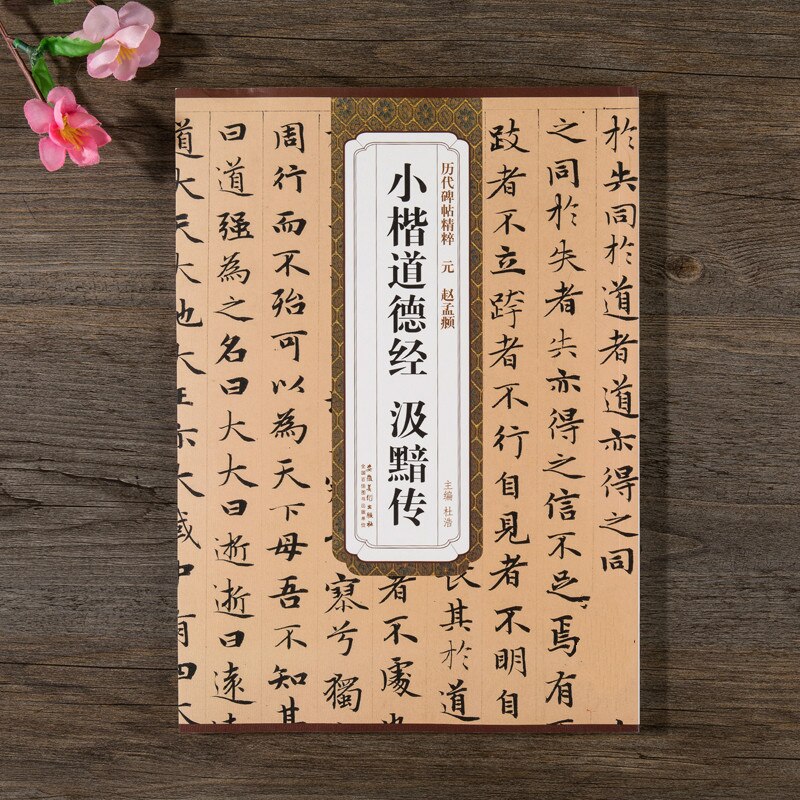 於失同於道者道亦得之同
之同於失者失亦得之信不足焉有
跂者不立跨者不行自見者不明自
历代碑帖精粹 元 赵孟頫
小楷道德经 汲黯传
主编 杜浩
安徽美术出版社
全国百佳图书出版单位
長其於道
者不處
寥兮獨
周行而不殆可以為天下母吾不知其
曰道强為之名曰大大曰逝逝曰遠遠
道大天大地大王亦大域中有四大